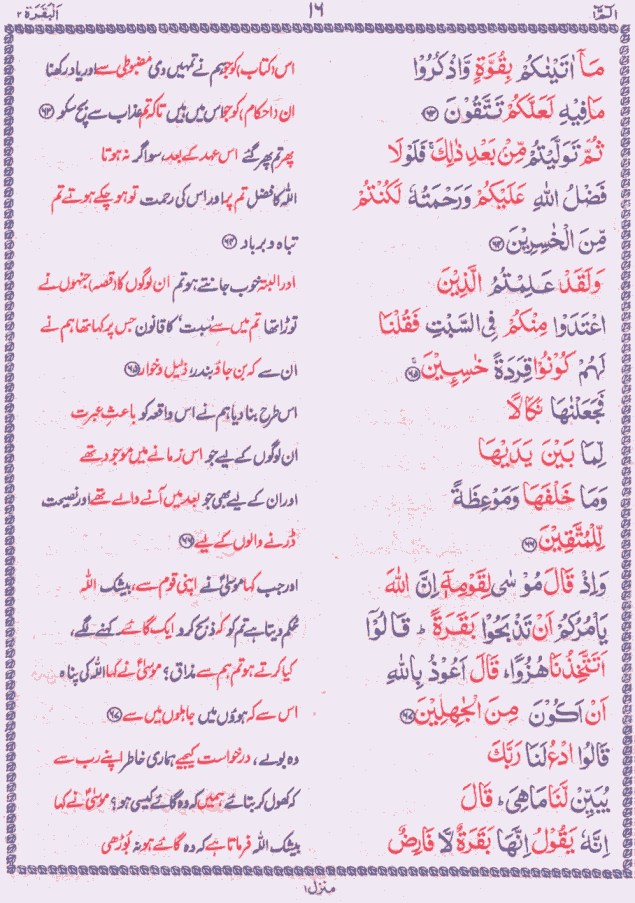 الٓمّٓ ١
١٦
اَلْبَقَرَة ٢
مَآ اٰتَيْنٰكُمْ بِقُوَّةٍ وَّاذْكُرُوْا
مَا فِيْهِ لَعَلَّكُمْ تَتَّقُوْنَ ﴿٦٣﴾
ثُمَّ تَوَلَّيْتُمْ مِّنْۢ بَعْدِ ذٰلِكَ ۚ فَلَوْلَا
فَضْلُ اللّٰهِ عَلَيْكُمْ وَرَحْمَتُهٗ لَكُنْتُمْ
مِّنَ الْخٰسِرِيْنَ ﴿٦٤﴾
وَلَقَدْ عَلِمْتُمُ الَّذِيْنَ
اعْتَدَوْا مِنْكُمْ فِى السَّبْتِ فَقُلْنَا
لَهُمْ كُوْنُوْا قِرَدَةً خٰسِـِٕيْنَ ﴿٦٥﴾ ۚ
فَجَعَلْنٰهَا نَكَالًا
لِّمَا بَيْنَ يَدَيْهَا
وَمَا خَلْفَهَا وَمَوْعِظَةً
لِّلْمُتَّقِيْنَ ﴿٦٦﴾
وَاِذْ قَالَ مُوْسٰى لِقَوْمِهٖٓ اِنَّ اللّٰهَ
يَاْمُرُكُمْ اَنْ تَذْبَحُوْا بَقَرَةً ؕ قَالُوْٓا
اَتَتَّخِذُنَا هُزُوًا ؕ قَالَ اَعُوْذُ بِاللّٰهِ
اَنْ اَكُوْنَ مِنَ الْجٰهِلِيْنَ ﴿٦٧﴾
قَالُوا ادْعُ لَنَا رَبَّكَ
يُبَيِّنْ لَّنَا مَا هِىَ ؕ قَالَ
اِنَّهٗ يَقُوْلُ اِنَّهَا بَقَرَةٌ لَّا فَارِضٌ
اس (کتاب) کو جو ہم نے تمہیں دی مضبوطی سے اور یاد رکھنا
ان (احکام) کو جو اس میں ہیں تاکہ تم عذاب سے بچ سکو ﴿٦٣﴾
پھر تم پھر گئے اس عہد کے بعد، سو اگر نہ ہوتا
اللہ کا فضل تم پر اور اس کی رحمت تو ہو چکے ہوتے تم
تباہ و برباد ﴿٦٤﴾
اور البتہ خوب جانتے ہو تم ان لوگوں کا (قصہ) جنہوں نے
توڑا تھا تم میں سے ‘سبت’ کا قانون جس پر کہا تھا ہم نے
ان سے کہ بن جاؤ بندر، ذلیل و خوار ﴿٦٥﴾
اس طرح بنا دیا ہم نے اس واقعہ کو باعثِ عبرت
ان لوگوں کے لیے جو اس زمانے میں موجود تھے
اور ان کے لیے بھی جو بعد میں آنے والے تھے اور نصیحت
ڈرنے والوں کے لیے ﴿٦٦﴾
اور جب کہا موسیٰؑ نے اپنی قوم سے، بیشک اللہ
حکم دیتا ہے تم کو کہ ذبح کرو ایک گائے۔ کہنے لگے،
کیا کرتے ہو تم ہم سے مذاق؟ موسیٰؑ نے کہا اللہ کی پناہ
اس سے کہ ہوؤں میں جاہلوں میں سے ﴿٦٧﴾
وہ بولے، درخواست کیجیے ہماری خاطر اپنے رب سے
کہ کھول کر بتائے ہمیں کہ وہ گائے کیسی ہو؟ موسیٰؑ نے کہا
بیشک اللہ فرماتا ہے کہ وہ گائے ہو نہ بوڑھی
منزل ١